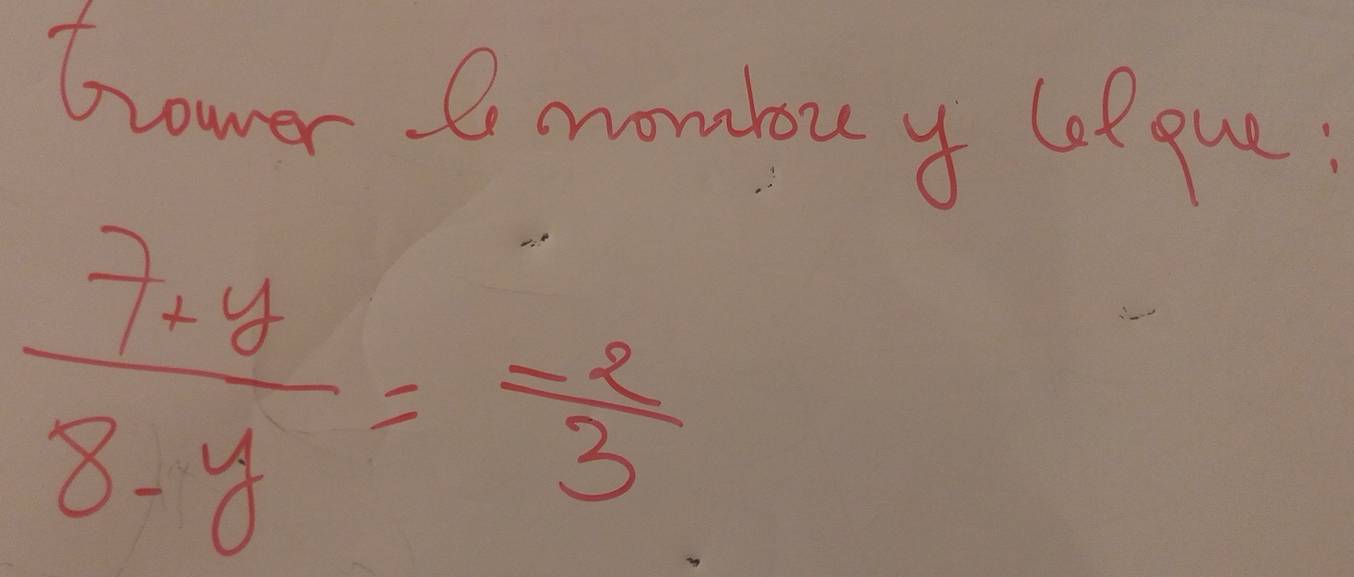 trouver le nombre y tel que :
7 + y
8 - y
= -2
3